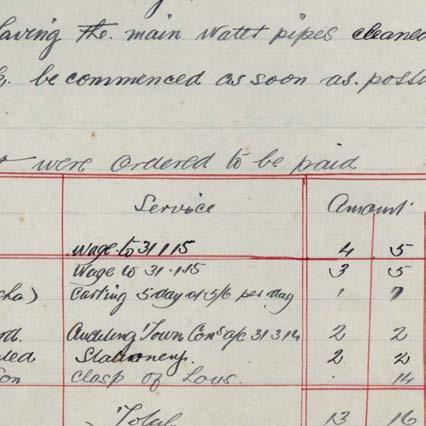 having the main water pipes cleaned
be commenced as soon as
were ordered to be paid
Service Amount
Wage to 31 1 15 4 5
Wage to 31.1.15 3 5
cha) Carting 5 day at 5/6 per day 1 7
rd. Auditing Town Cons a/c 31 3 14 2 2
ded Stationery. 2 2
son Clasp of 14
Total 13 16